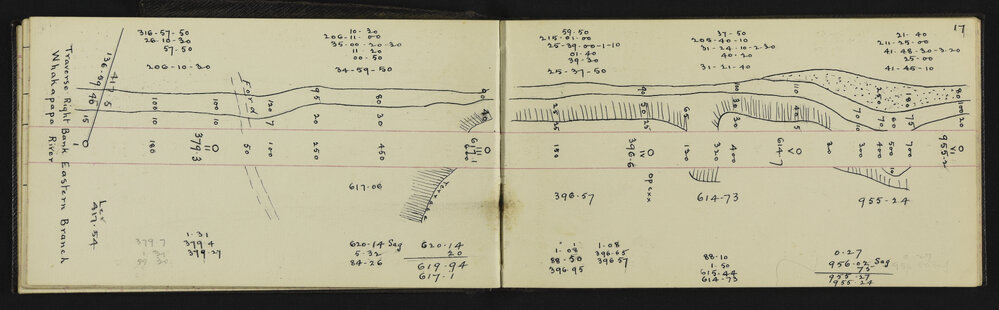 17
Traverse Right Bank Eastern Branch
Whakapapa River
316-57-50
26-10-30
57-50
206-10-20
10-30
206-11-00
35-00-20-30
11-20
00-50
34-59-50
59-50
215-01-00
25-39-00-1-10
01-40
39-30
25-37-50
37-50
205-40-10
31-24-10-2-30
40-20
31-21-40
21-40
211-25-00
41-48-30-3-20
25-00
41-45-10
136-59-46
417-5
15
100
10
100
10
Ford
120
7
95
20
80
30
90
40
25
25
50
25
65
30
30
100
110
40
5
250
70
10
180
60
10
80
75
100
20
I
180
379.3
II
50
100
250
450
600
617.1
III
150
396.6
IV
120
320
400
614.7
V
200
300
400
500
700
955.2
VI
Terrace
617.06
396.57
614-73
955-24
Ler
417.54
379 7
1.31
379.4
379.27
620.14 Sag
5-32
84-26
620.14
20
619-94
617.1
1
1-08
88-50
396-95
1-08
396-65
396-57
88-10
1-50
615-44
614-73
0-27
956-02 Sag
75
955-27
955-24